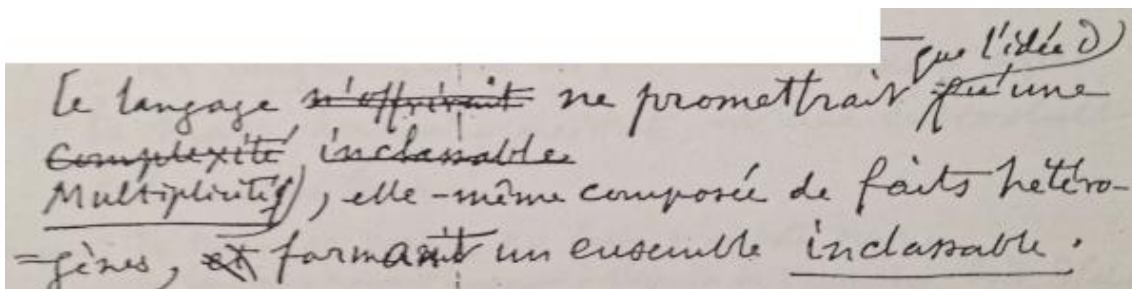 que l'idée d'
Le langage n'offrirait ne promettrait qu'une
Complexité inclassable
Multiplicité, elle-même composée de faits hétéro-
=gènes, et formant un ensemble inclassable.